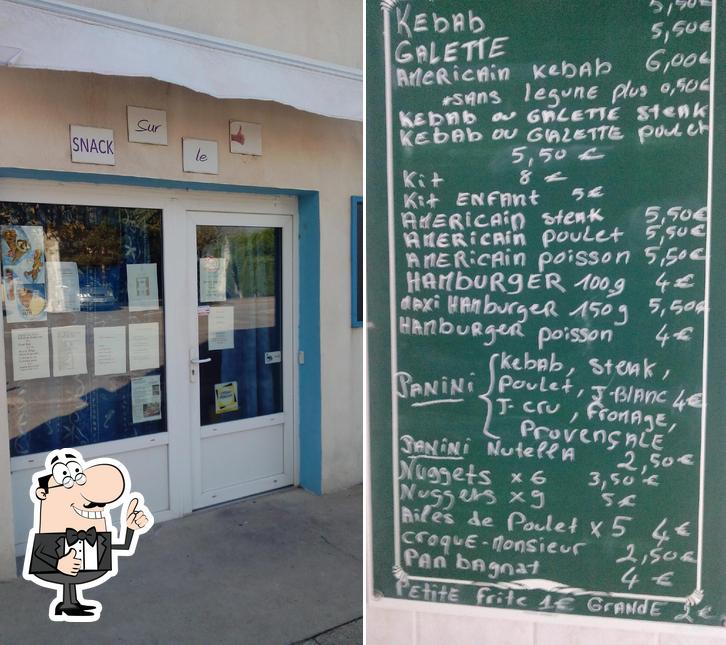 SNACK
Sur
le
5,50€
KEBAB 5,50€
GALETTE
AMERICAIN KEBAB 6,00€
*SANS legune plus 0,50€
KEBAB OU GALETTE STEAK
KEBAB OU GALETTE poulet
5,50 €
Kit 8 €
Kit ENFANT 5€
AMERICAIN steak 5,50€
AMERICAIN poulet 5,50€
AMERICAIN poisson 5,50€
HAMBURGER 100g 4€
MAXI HAMBURGER 150g 5,50€
HAMBURGER poisson 4€
PANINI
Kebab, STEAK,
Poulet, J-BLANC 4€
J-cru, FROMAGE,
PROVENÇALE
PANINI Nutella 2,50€
Nuggets x6 3,50€
Nuggets x9 5€
Ailes de Poulet x5 4€
CROQUE-MONSIEUR 2,50€
PAN bagnat 4 €
PETITE Frite 1€ GRANDE 2€